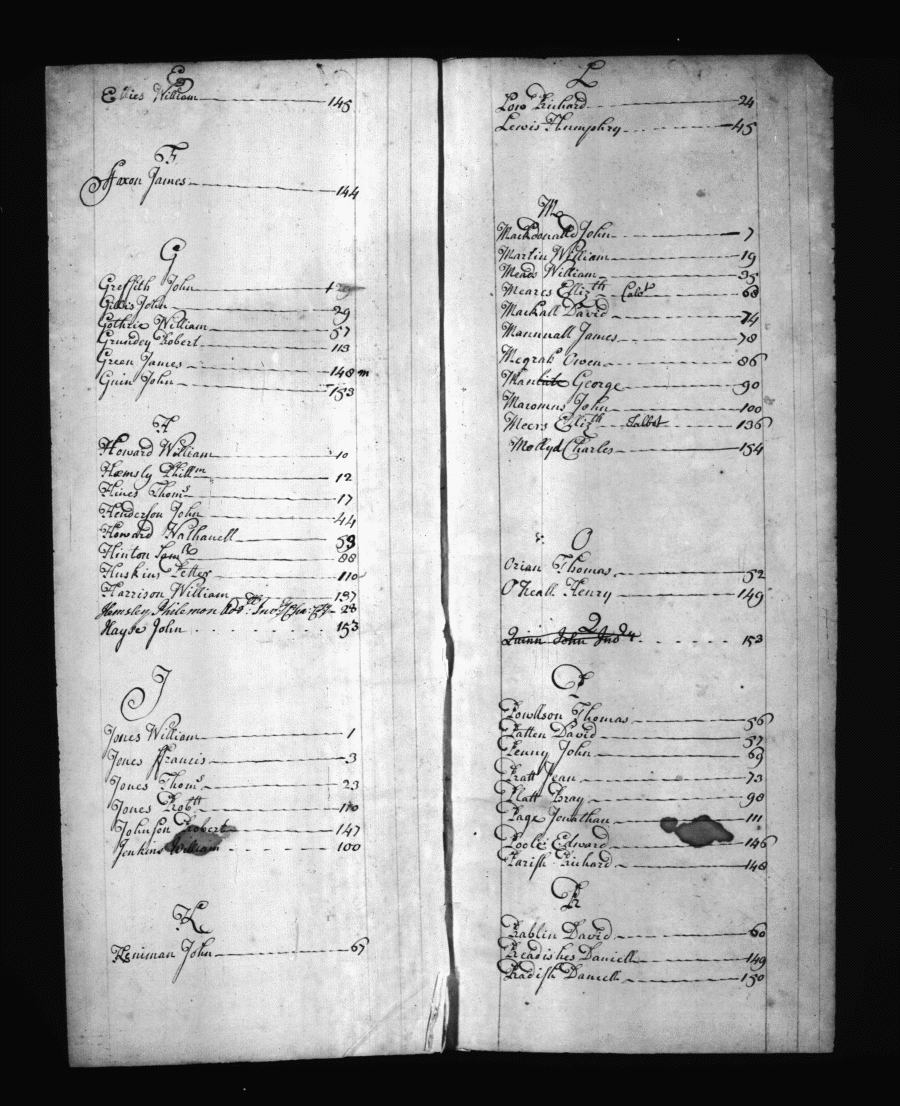 E
Ellies William 145
F
ffaxon James 144
G
Greffith John
Gillis John 29
Gothrie William 57
Grundey Robert 113
Green James 148 m
Guin John 153
H
Howard William 10
Hemsly Phillm 12
Hines Thoms 17
Henderson John 44
Howard Nathanell 53
Hinton Samll 88
Huskins Petter 110
Harrison William 137
Hemsley Philemon 28
Hayse John 153
J
Jones William 1
Jones ffrancis 3
Jones Thoms 23
Jones Robtt 110
Johnson Robert 147
Jenkins William 100
K
Keniman John 67
L
Low Richard 24
Lewis Humphry 45
M
Mackdonalld John 7
Martin William 19
Meads William 35
Meares Ellizth 68
Mackall David 74
Mannuall James 78
Megrah Owen 86
George 90
Maromns John 100
Meers Ellizth Talbot 136
Mollyd Charles 154
O
Orian Thomas 52
O'Neall Henry 149
Q
Quinn John 153
P
Powllson Thomas 56
Patten David 57
Penny John 69
Pratt Jean 73
Platt Pray 98
Page Jonathan 111
Poole Edward 146
Parish Richard 148
R
Rablin David 60
Readishes Daniell 149
Radish Daniell 150